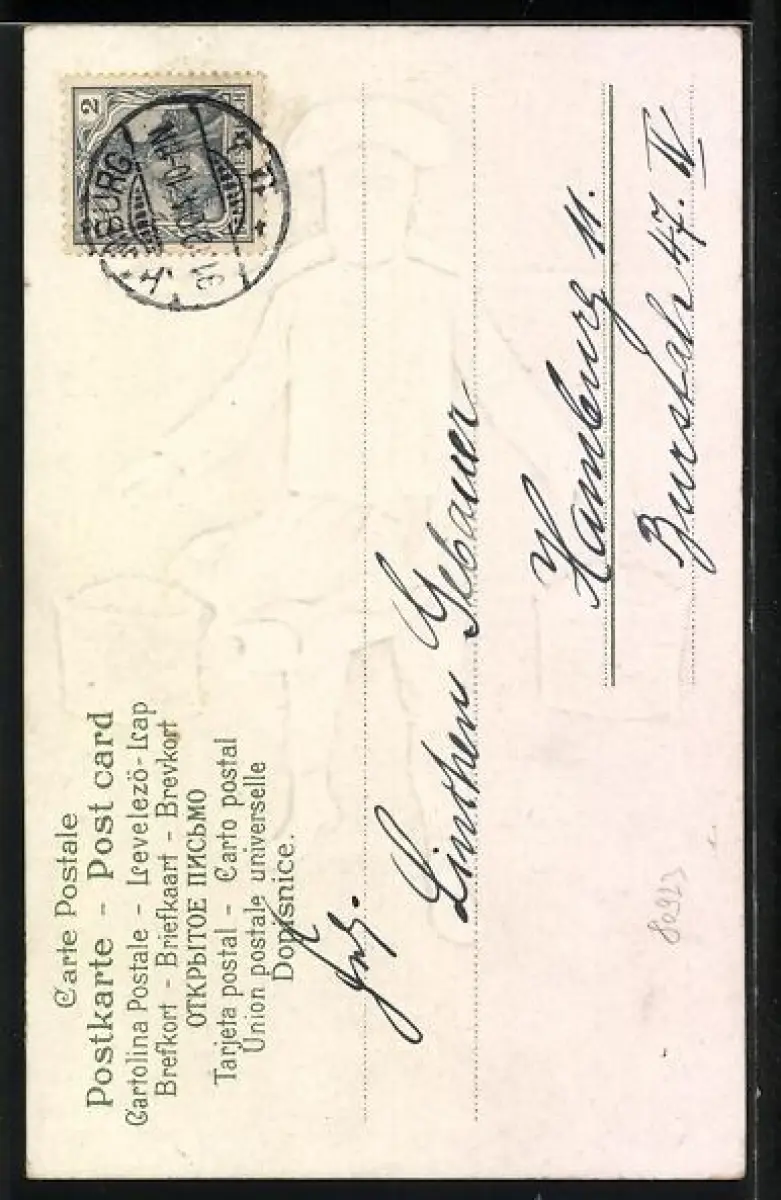 Carte Postale
Postkarte - Post card
Cartolina Postale - Levelező-Lap
Brefkort - Briefkaart - Brevkort
ОТКРЫТОЕ ПИСЬМО
Tarjeta postal - Carto postal
Union postale universelle
Dopisnice.
2
Frl.
Linchen Gebauer
Hamburg 11.
Burstah 47. IV
80923